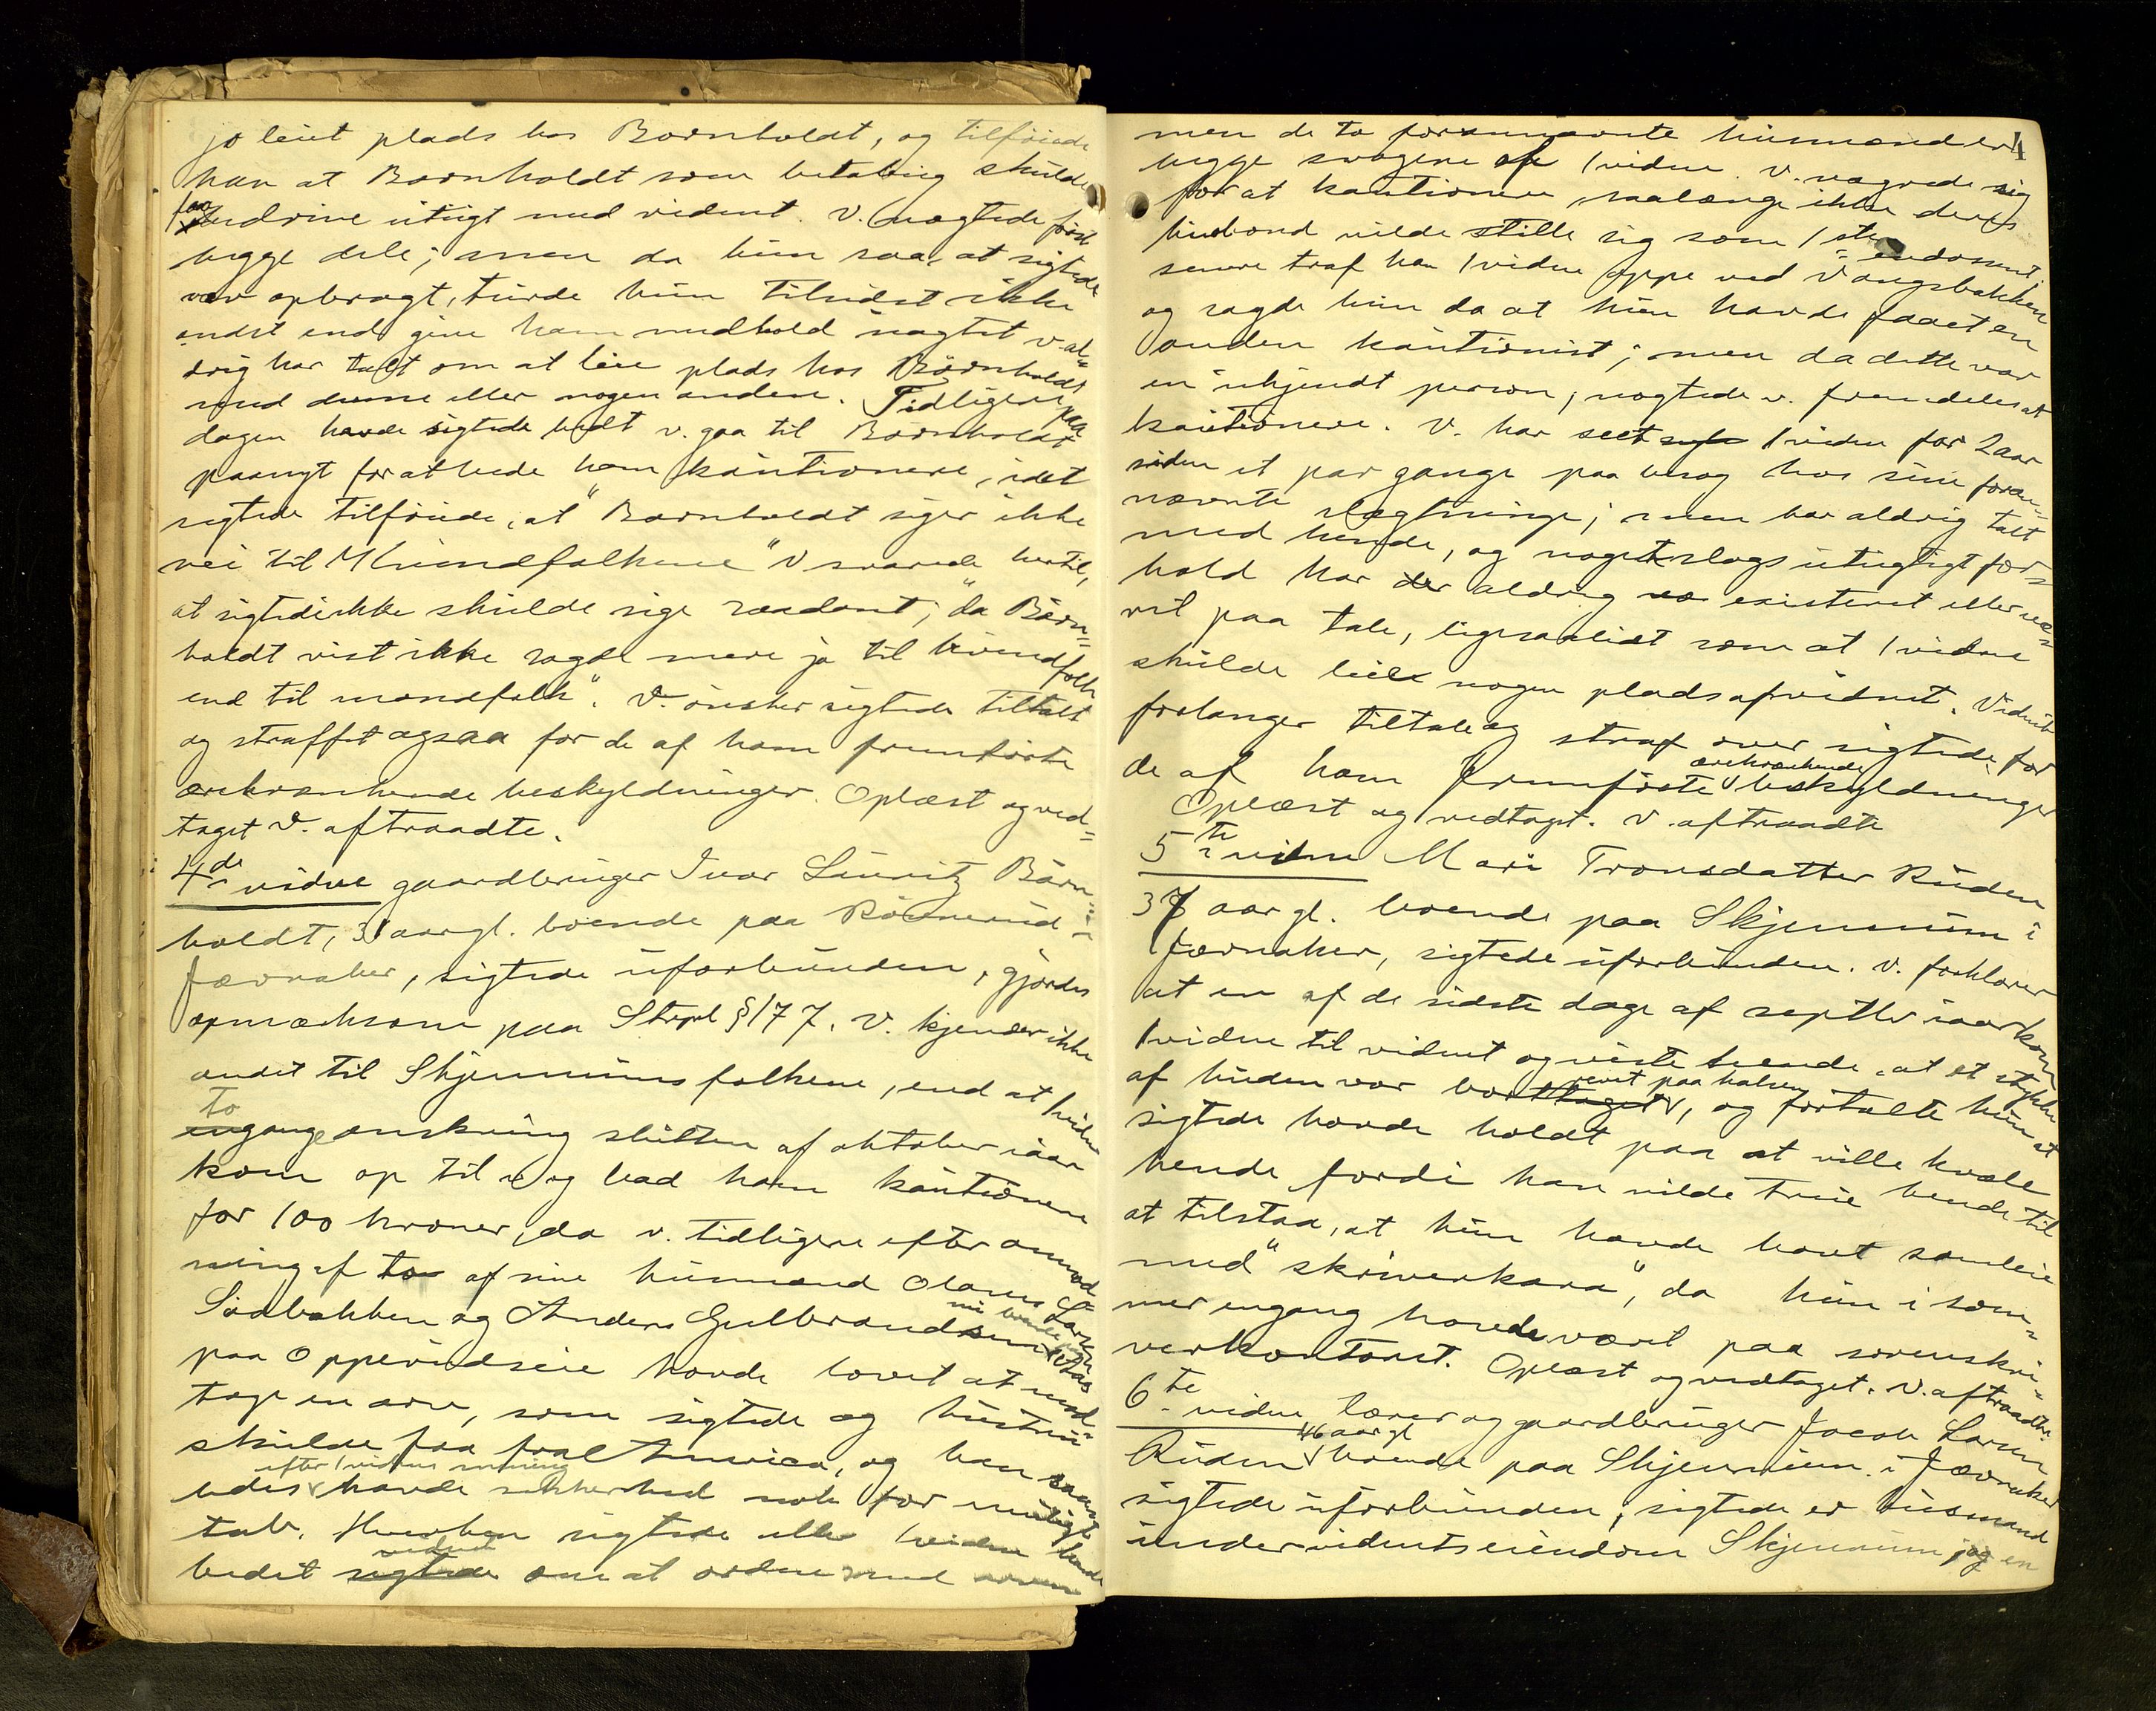 jo leiet plads hos Bornholdt, og tilföiede
han at Bornholdt som betaling skulde
for
bedrive utugt med vidnet. V. nægtede först
begge dele; men da hun saa, at sigtede
var opbragt, turde hun tilsidst ikke
andet end give ham medhold uagtet v. al=
drig har talt om at leie plads hos Börnholdt
med denne eller nogen anden. Tidligere paa
dagen havde sigtede bedt v. gaa til Börnholdt
paanyt for at bede ham kautionere, idet
sigtede tilföiede, at "Bornholdt siger ikke
nei til Kvindfolkene" V svarede hertil,
at sigtede ikke skulde sige saadant, "da Börn=
holdt vist ikke sagde mere ja til kvindfolk
end til mandfolk". V. önsker sigtede tiltalt
og straffet ogsaa for de af ham fremförte
ærekrænkende beskyldninger. Oplæst og ved=
taget V. aftraadte.
4de vidne gaardbruger Ivar Lauritz Börn=
holdt, 31 aar gl. boende paa Rönnerud i
Jævnaker, sigtede uforbunden, gjordes
opmærksom paa Strpl §177. V. kjender ikke
andet til Skjennumsfolkene, end at 1 vidne
to
engange omkring slutten af oktober iaar
kom op til v. og bad ham kautionere
for 100 kroner, da v. tidligere efter anmod=
ning af to af sine husmænd Olaus Larsen
Sörbakken og Anders Gulbrandsen
nu boende
paa Opperudseie havde lovet at mod=
tage en arv, som sigtede og hustru
skulde faa fra America, og han saa=
efter 1 vidnes mening
ledes havde sikkerhed nok for muligt
tab. Hverken sigtede eller 1 vidne havde
vidnet
bedet sigtede om at ordne med
men de to forannævnte husmænd er 4
begge svogere af 1 vidne. V. vægrede sig
for at kautionere, saalænge ikke deres
husbond vilde stille sig som 1ste
senere traf han 1 vidne oppe ved Vangsbakken
og sagde hun da at hun havde faaet en
anden kautionist; men da dette var
en ukjendt person, nægtede v. fremdeles at
kautionere. V. har seet 1 vidne for 2 aar
siden et par gange paa besøg hos sine foran=
nævnte slægtninge; men har aldrig talt
med hende, og noget slags utugtigt for=
hold har der aldrig existeret eller væ=
ret paa tale, ligesaalidt som at 1 vidne
skulde leie nogen plads af vidnet. Vidnet
forlanger tiltale og straf over sigtede for
ærekrænkende
de af ham fremförte beskyldninger
Oplæst og vedtaget. V. aftraadte
5te vidne Mari Tronsdatter Ruden
37 aar gl. boende paa Skjennum i
Jævnaker, sigtede uforbunden. V. forklarer
at en af de sidste dage af septbr iaar kom
1 vidne til vidnet og viste hende, at et stykke
revet paa halsen
af huden var borttaget, og fortalte hun at
sigtede havde holdt paa at ville kvæle
hende fordi han vilde true hende til
at tilstaa, at hun havde havt samleie
med "skriverkara", da hun i som=
mer engang havde været paa sorenskri=
verkontoret. Oplæst og vedtaget. V. aftraadte.
6te vidne lærer og gaardbruger Jacob Larsen
46 aar gl
Ruden boende paa Skjennum i Jævnaker
sigtede uforbunden, sigtede er husmand
under vidnets eiendom Skjennum, og en